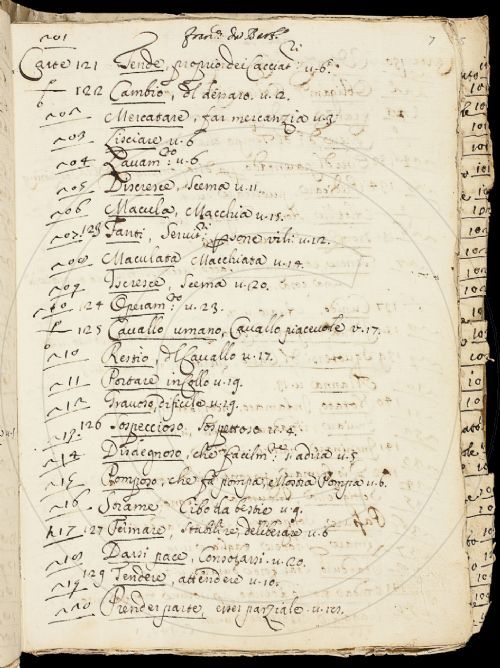 201 7
Carte 121 Tende, proprio dei Cacciat.ri v.6.
122 Cambio, del denaro. v.12.
202 Mercatare, far mercanzia v.3.
203 Lisciare v.6
204 Lavam.to v.6
205 Discresce, Scema v.11.
206 Macula, Macchia v.15.
207 123 Fanti, Servit.i, persone vili. v.12.
208 Maculata Macchiata v.14.
209 Iscresce, Scema v.20.
124 Operam.to v.23.
125 Cavallo umano, Cavallo piacevole v.17.
210 Restio, Cavallo v.17.
211 Portare in collo v.19.
212 Gravoso, dificile v.19.
126 Sospeccioso Sospettoso
214 Disdegnoso, che facilm.te s'adira v.5
215 Pomposo, che fa pompa, e Mostra Pompa v.6.
216 Strame Cibo da bestie v.9.
217 127 Fermare, Stabilire, deliberare v.6
218 Darsi pace, Consolarsi v.20.
219 129 Tendere, attendere v.10.
220 Prender parte, esser parziale v.